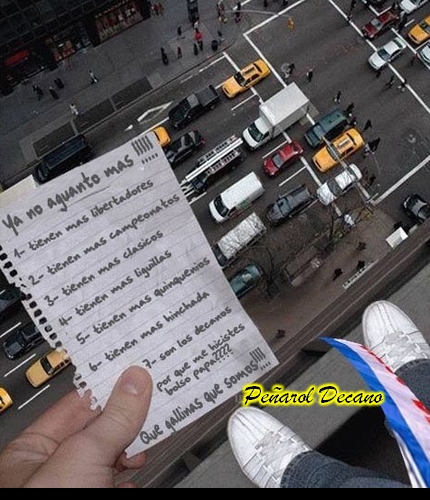 Ya no aguanto mas !!!!!
1- tienen mas libertadores
2- tienen mas campeonatos
3- tienen mas clasicos
4- tienen mas liguillas
5- tienen mas quinquenios
6- tienen mas hinchada
7- son los decanos
por que me hicistes
bolso papa????
Que gallinas que somos!!!!
Peñarol Decano